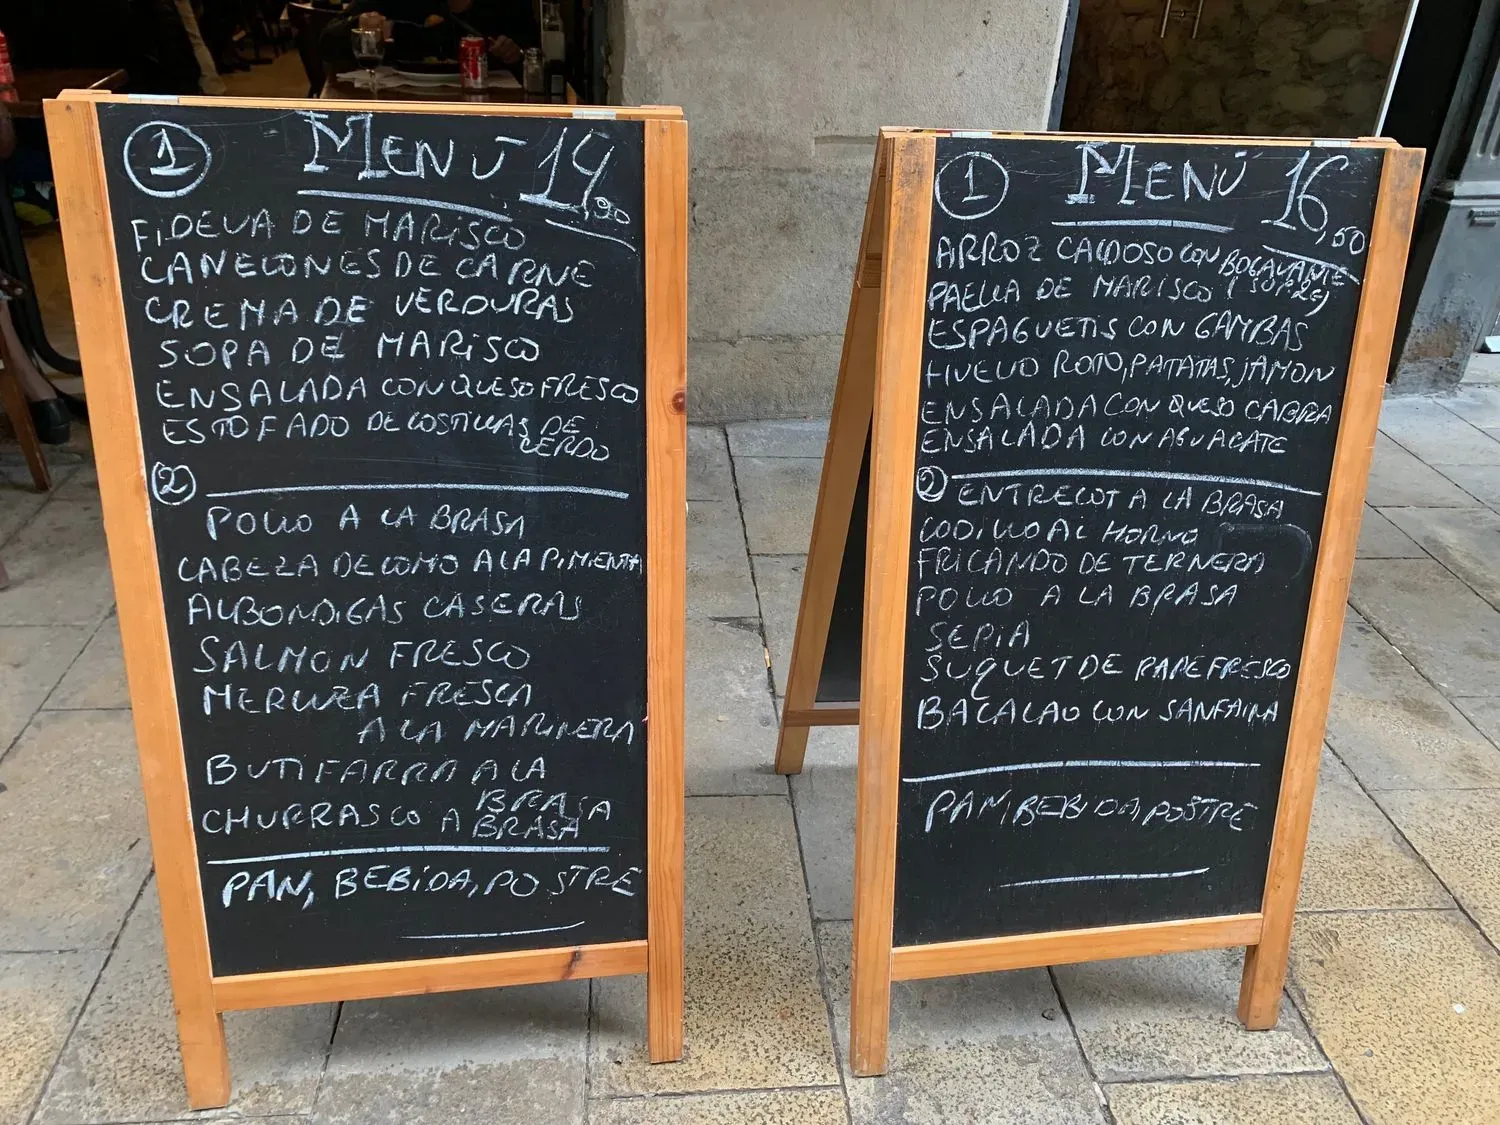 1 MENÚ 14,90
FIDEUA DE MARISCO
CANELONES DE CARNE
CREMA DE VERDURAS
SOPA DE MARISCO
ENSALADA CON QUESO FRESCO
ESTOFADO DE COSTILLAS DE
CERDO
2
POLLO A LA BRASA
CABEZA DE LOMO A LA PIMIENTA
ALBONDIGAS CASERAS
SALMON FRESCO
MERLUZA FRESCA
A LA MARINERA
BUTIFARRA A LA
BRASA
CHURRASCO A BRASA
PAN, BEBIDA, POSTRE
1 MENÚ 16,60
ARROZ CALDOSO CON BOGAVANTE
PAELLA DE MARISCO
ESPAGUETIS CON GAMBAS
HUEVO ROTO, PATATAS, JAMON
ENSALADA CON QUESO CABRA
ENSALADA CON AGUACATE
2 ENTRECOT A LA BRASA
CODILLO AL HORNO
FRICANDO DE TERNERA
POLLO A LA BRASA
SEPIA
SUQUET DE RAPE FRESCO
BACALAO CON SANFAINA
PAN, BEBIDA, POSTRE